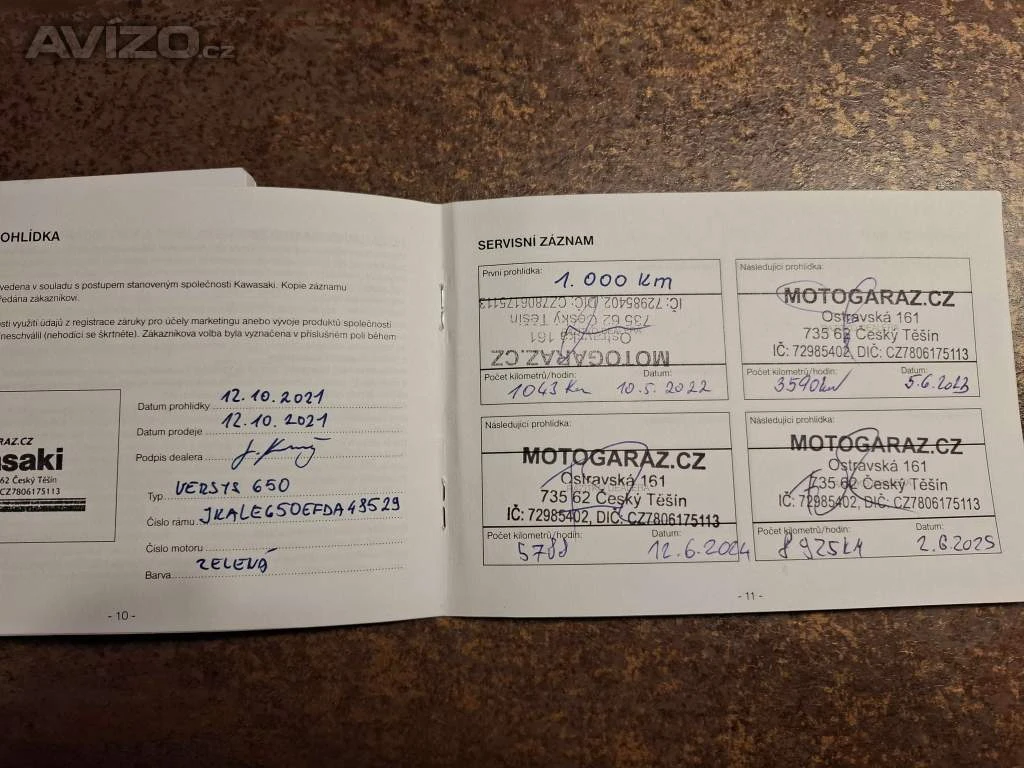 AVÍZO.cz
OHLÍDKA
vedena v souladu s postupem stanoveným společností Kawasaki. Kopie záznamu
ředána zákazníkovi.
osti využití údajů z registrace záruky pro účely marketingu anebo vývoje produktů společnosti
neschválil (nehodící se škrtněte). Zákazníkova volba byla vyznačena v příslušném poli během
RAZ.CZ
asaki
62 Český Těšín
CZ7806175113
Datum prohlídky 12.10.2021
Datum prodeje 12.10.2021
Podpis dealera
Typ VERSYS 650
Číslo rámu JKALE650EFDA48529
Číslo motoru
Barva ZELENÁ
- 10 -
SERVISNÍ ZÁZNAM
První prohlídka: 1.000 Km
MOTOGARAZ.CZ
Ostravská 161
735 62 Český Těšín
IČ: 72985402, DIČ: CZ7806175113
Počet kilometrů/hodin: Datum:
1043 Km 10.5.2022
Následující prohlídka:
MOTOGARAZ.CZ
Ostravská 161
735 62 Český Těšín
IČ: 72985402, DIČ: CZ7806175113
Počet kilometrů/hodin: Datum:
3590km 5.6.2023
Následující prohlídka:
MOTOGARAZ.CZ
Ostravská 161
735 62 Český Těšín
IČ: 72985402, DIČ: CZ7806175113
Počet kilometrů/hodin: Datum:
5788 12.6.2024
Následující prohlídka:
MOTOGARAZ.CZ
Ostravská 161
735 62 Český Těšín
IČ: 72985402, DIČ: CZ7806175113
Počet kilometrů/hodin: Datum:
8925kM 2.6.2025
- 11 -